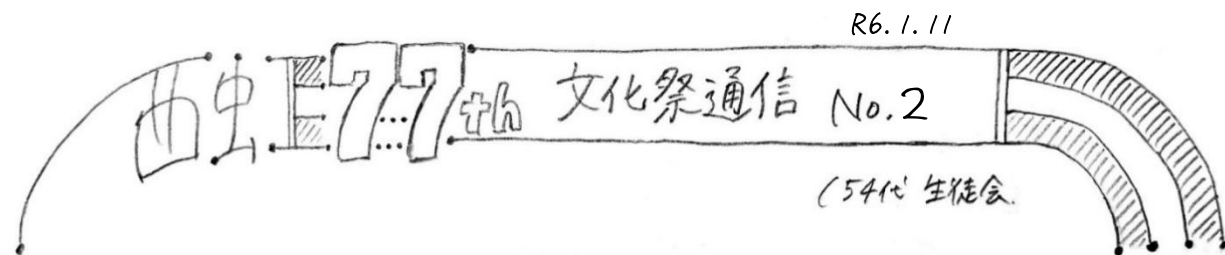 R6.1.11
77th 文化祭通信 No.2
(54代 生徒会